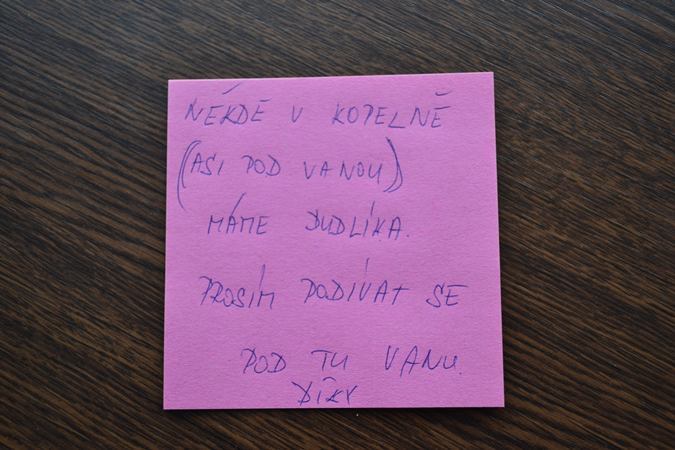 NĚKDE V KOPELNĚ
(ASI POD VANOU)
MÁME DUDLÍKA.
PROSÍM PODÍVAT SE
POD TU VANU.
DÍKY